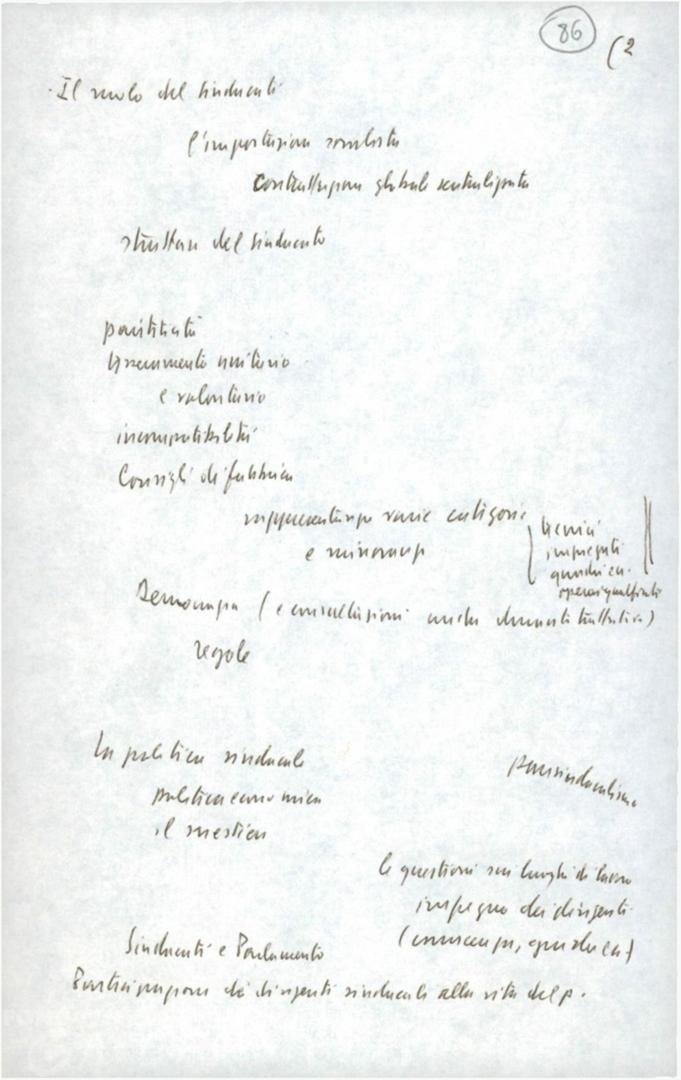 86
(2
Il ruolo dei sindacati
l'impostazione
Contrattazione globale centralizzata
struttura del sindacato
pariteticità
tesseramento unitario
e volontario
incompatibilità
Consigli di fabbrica
rappresentanza varie categorie
e minoranze
tecnici
impiegati
quadri ecc.
operai qualificati
Democrazia (e consultazioni anche durante trattative)
regole
La politica sindacale
politica economica
il
pansindacalismo
le questioni sui luoghi di lavoro
impegno dei dirigenti
(conoscenza, quadri ecc)
Sindacati e Parlamento
Partecipazione di dirigenti sindacali alla vita del p.